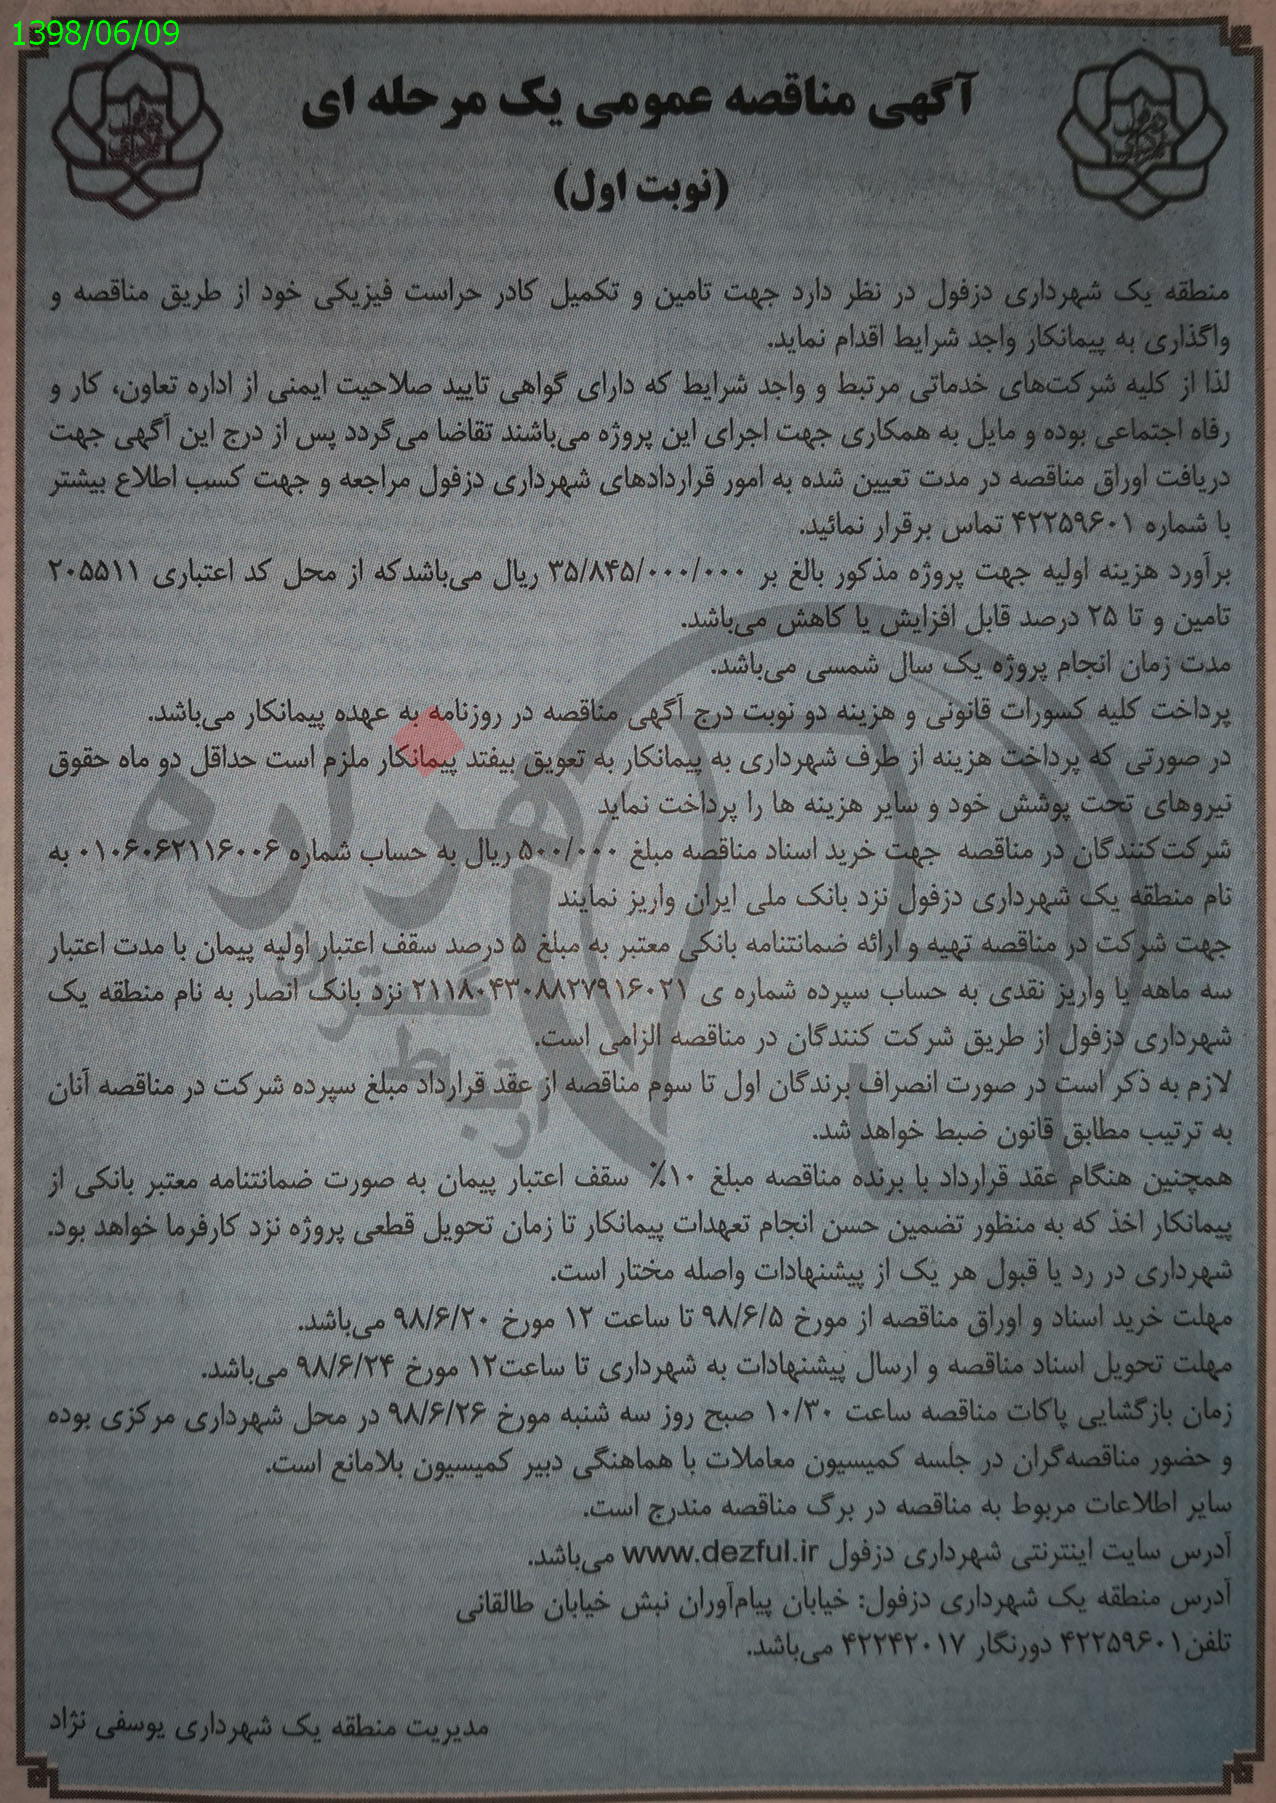 1398/06/09
آگهی مناقصه عمومی یک مرحله ای
(نوبت اول)
منطقه یک شهرداری دزفول در نظر دارد جهت تامین و تکمیل کادر حراست فیزیکی خود از طریق مناقصه و
واگذاری به پیمانکار واجد شرایط اقدام نماید.
لذا از کلیه شرکت‌های خدماتی مرتبط و واجد شرایط که دارای گواهی تایید صلاحیت ایمنی از اداره تعاون، کار و
رفاه اجتماعی بوده و مایل به همکاری جهت اجرای این پروژه می‌باشند تقاضا می‌گردد پس از درج این آگهی جهت
دریافت اوراق مناقصه در مدت تعیین شده به امور قراردادهای شهرداری دزفول مراجعه و جهت کسب اطلاع بیشتر
با شماره ۴۲۲۵۹۶۰۱ تماس برقرار نمائید.
برآورد هزینه اولیه جهت پروژه مذکور بالغ بر ۳۵/۸۴۵/۰۰۰/۰۰۰ ریال می‌باشدکه از محل کد اعتباری ۲۰۵۵۱۱
تامین و تا ۲۵ درصد قابل افزایش یا کاهش می‌باشد.
مدت زمان انجام پروژه یک سال شمسی می‌باشد.
پرداخت کلیه کسورات قانونی و هزینه دو نوبت درج آگهی مناقصه در روزنامه به عهده پیمانکار می‌باشد.
در صورتی که پرداخت هزینه از طرف شهرداری به پیمانکار به تعویق بیفتد پیمانکار ملزم است حداقل دو ماه حقوق
نیروهای تحت پوشش خود و سایر هزینه ها را پرداخت نماید
شرکت‌کنندگان در مناقصه جهت خرید اسناد مناقصه مبلغ ۵۰۰/۰۰۰ ریال به حساب شماره ۰۱۰۶۰۶۲۱۱۶۰۰۶ به
نام منطقه یک شهرداری دزفول نزد بانک ملی ایران واریز نمایند
جهت شرکت در مناقصه تهیه و ارائه ضمانتنامه بانکی معتبر به مبلغ ۵ درصد سقف اعتبار اولیه پیمان با مدت اعتبار
سه ماهه یا واریز نقدی به حساب سپرده شماره ی ۲۱۱۸۰۴۳۰۸۸۲۷۹۱۶۰۲۱ نزد بانک انصار به نام منطقه یک
شهرداری دزفول از طریق شرکت کنندگان در مناقصه الزامی است.
لازم به ذکر است در صورت انصراف برندگان اول تا سوم مناقصه از عقد قرارداد مبلغ سپرده شرکت در مناقصه آنان
به ترتیب مطابق قانون ضبط خواهد شد.
همچنین هنگام عقد قرارداد با برنده مناقصه مبلغ ۱۰٪ سقف اعتبار پیمان به صورت ضمانتنامه معتبر بانکی از
پیمانکار اخذ که به منظور تضمین حسن انجام تعهدات پیمانکار تا زمان تحویل قطعی پروژه نزد کارفرما خواهد بود.
شهرداری در رد یا قبول هر یک از پیشنهادات واصله مختار است.
مهلت خرید اسناد و اوراق مناقصه از مورخ ۹۸/۶/۵ تا ساعت ۱۲ مورخ ۹۸/۶/۲۰ می‌باشد.
مهلت تحویل اسناد مناقصه و ارسال پیشنهادات به شهرداری تا ساعت۱۲ مورخ ۹۸/۶/۲۴ می‌باشد.
زمان بازگشایی پاکات مناقصه ساعت ۱۰/۳۰ صبح روز سه شنبه مورخ ۹۸/۶/۲۶ در محل شهرداری مرکزی بوده
و حضور مناقصه‌گران در جلسه کمیسیون معاملات با هماهنگی دبیر کمیسیون بلامانع است.
سایر اطلاعات مربوط به مناقصه در برگ مناقصه مندرج است.
آدرس سایت اینترنتی شهرداری دزفول www.dezful.ir می‌باشد.
آدرس منطقه یک شهرداری دزفول: خیابان پیام‌آوران نبش خیابان طالقانی
تلفن۴۲۲۵۹۶۰۱ دورنگار ۴۲۲۴۲۰۱۷ می‌باشد.
مدیریت منطقه یک شهرداری یوسفی نژاد
هزاره
گستران
ارتباط